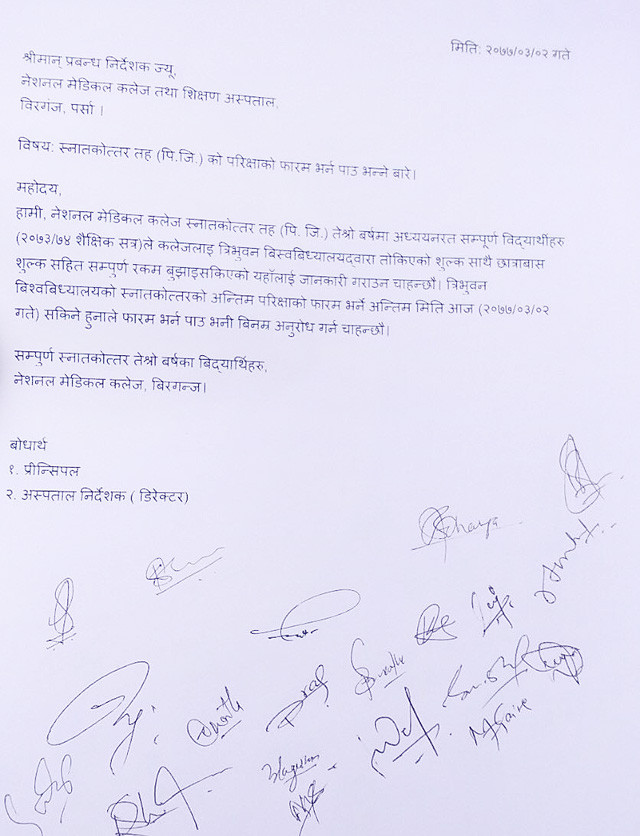 मिति: २०७७/०३/०२ गते
श्रीमान् प्रबन्ध निर्देशक ज्यू,
नेशनल मेडिकल कलेज तथा शिक्षण अस्पताल,
विरगंज, पर्सा ।
विषय: स्नातकोत्तर तह (पि.जि.) को परिक्षाको फारम भर्न पाउ भन्ने बारे।
महोदय,
हामी, नेशनल मेडिकल कलेज स्नातकोत्तर तह (पि. जि.) तेश्रो बर्षमा अध्ययनरत सम्पूर्ण विद्यार्थीहरु
(२०७३/७४ शैक्षिक सत्र)ले कलेजलाइ त्रिभुवन बिस्वबिध्यालयद्वारा तोकिएको शुल्क साथै छात्राबास
शुल्क सहित सम्पुर्ण रकम बुझाइसकिएको यहाँलाई जानकारी गराउन चाहन्छौ। त्रिभुवन
बिश्वबिध्यालयको स्नातकोत्तरको अन्तिम परिक्षाको फारम भर्ने अन्तिम मिति आज (२०७७/०३/०२
गते) सकिने हुनाले फारम भर्न पाउ भनी बिनम्र अनुरोध गर्न चाहन्छौ।
सम्पुर्ण स्नातकोत्तर तेश्रो बर्षका बिद्यार्थिहरु,
नेशनल मेडिकल कलेज, बिरगन्ज।
बोधार्थ
१. प्रीन्सिपल
२. अस्पताल निर्देशक ( डिरेक्टर)